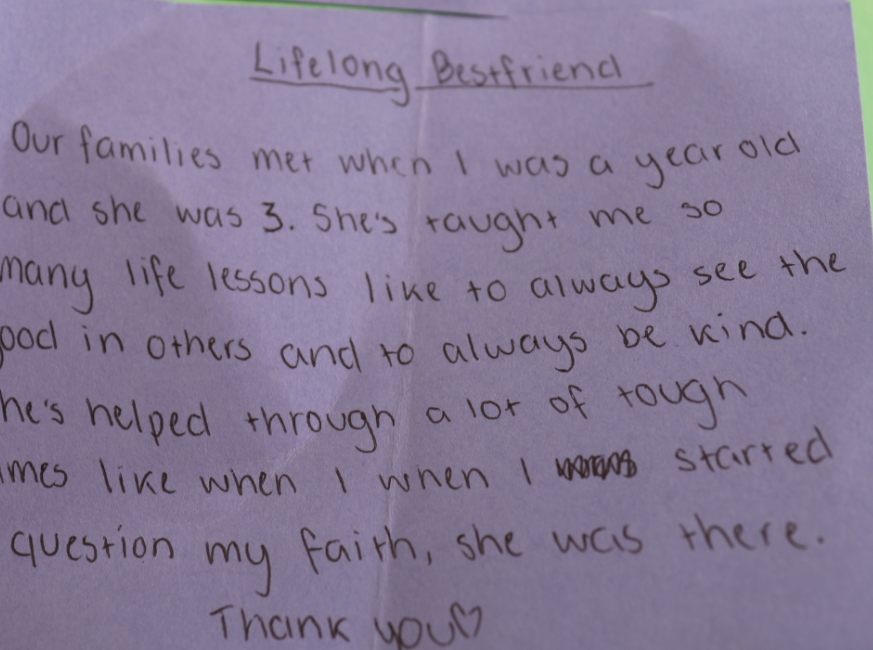 Lifelong Bestfriend
Our families met when I was a year old
and she was 3. She's taught me so
many life lessons like to always see the
ood in others and to always be kind.
he's helped through a lot of tough
imes like when I when I started
question my faith, she was there.
Thank you♡